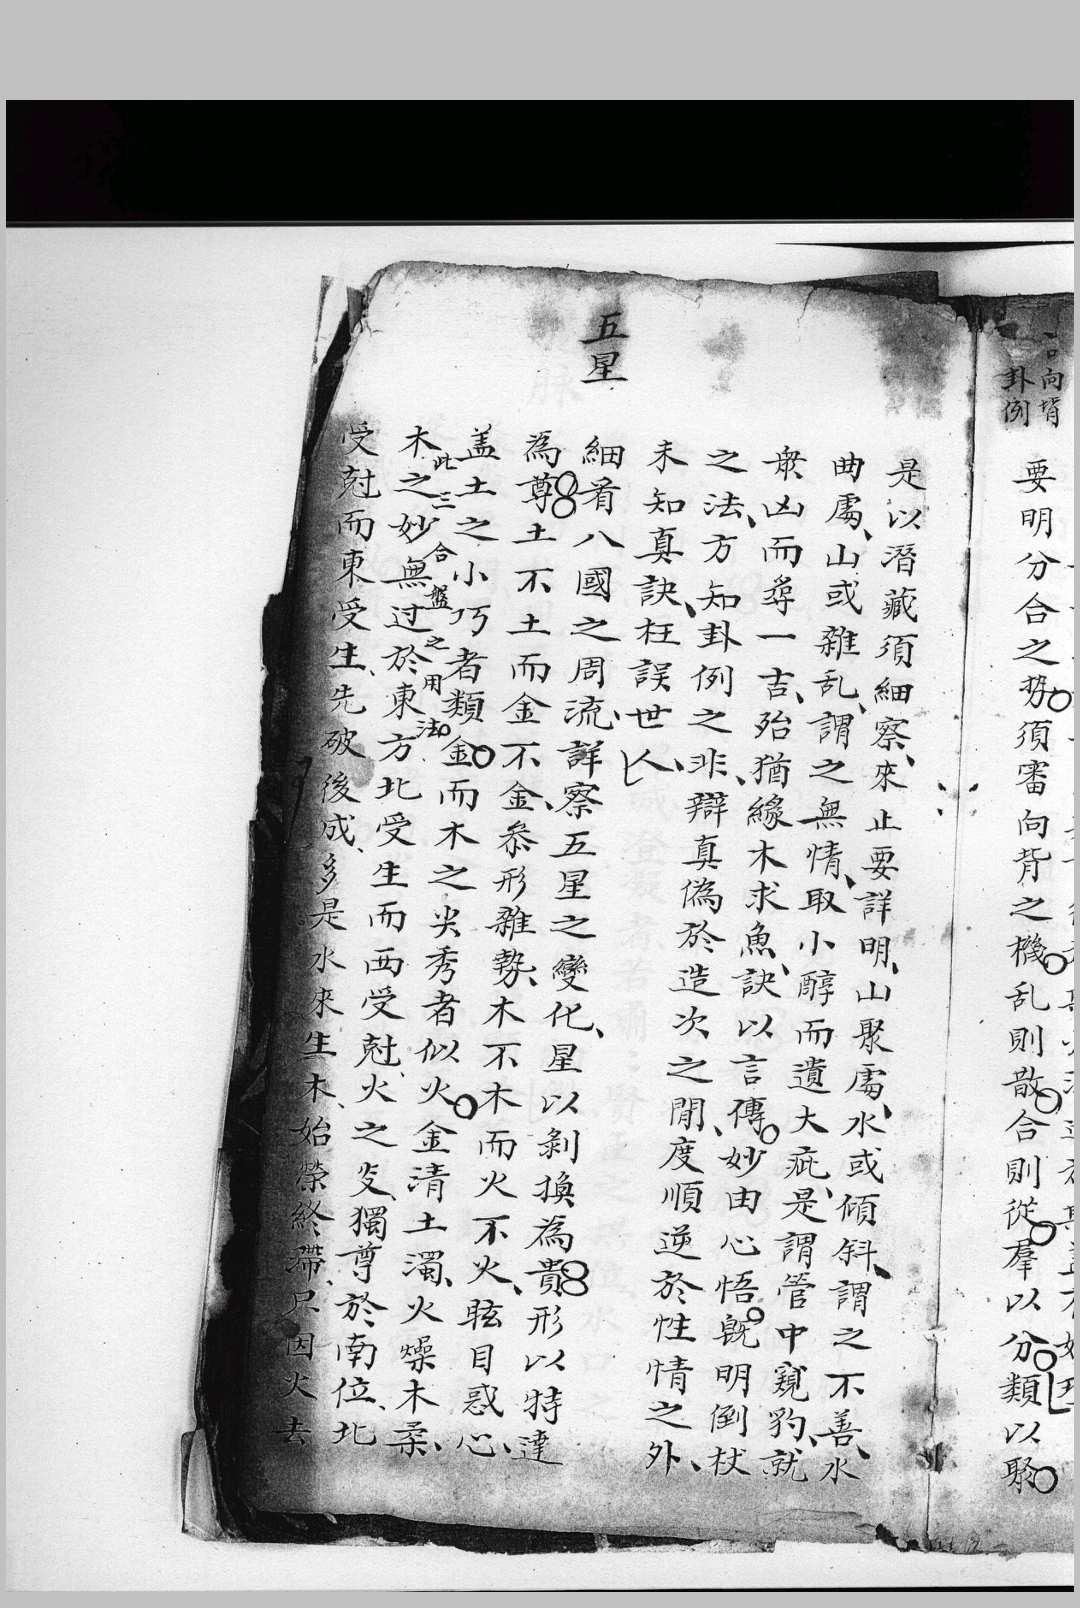 向背
卦例
要明分合之勢須審向背之機乱則散合則從羣以分類以聚
是以潛藏須細察來止要詳明山聚處水或傾斜謂之不善水
曲處山或雜乱謂之無情取小醇而遺大疵是謂管中窺豹就
衆凶而尋一吉殆猶緣木求魚訣以言傳妙由心悟旣明倒杖
之法方知卦例之非辯真偽於造次之間度順逆於性情之外
未知真訣枉誤世人
五星
細肴八國之周流詳察五星之變化星以剝換為貴形以特達
為尊土不土而金不金叅形雜勢木不木而火不火眩目惑心
盖土之小巧者類金而木之尖秀者似火金清土濁火燥木柔
此三合盤之用法
木之妙無过於東方北受生而西受尅火之炎獨尊於南位北
受尅而東受生先破後成多是水來生木始榮終滯只因火去